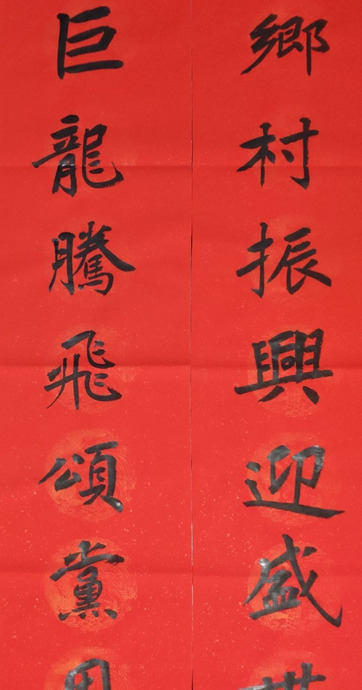 鄉村振興迎盛
巨龍騰飛頌黨